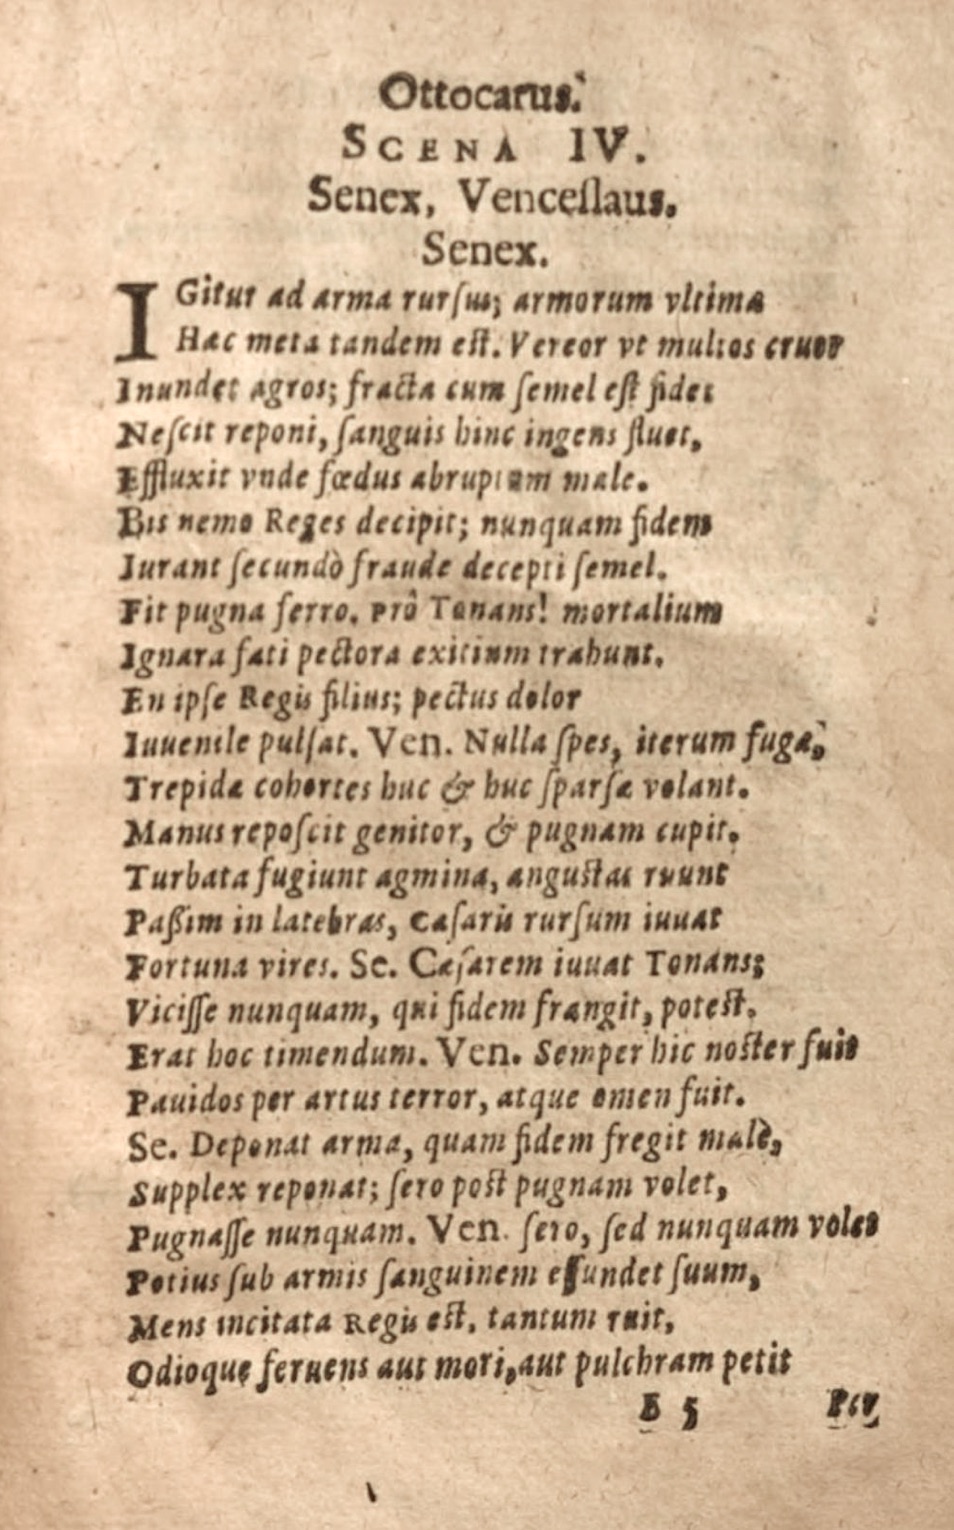 Ottocarus.
SCENA IV.
Senex, Venceſlaus.
Senex.
IGitur ad arma rurſus; armorum vltima
Hac meta tandem eſt. Vereor vt multos cruor
Inundet agros; fracta cum ſemel eſt fides
Neſcit reponi, ſanguis hinc ingens fluet,
Effluxit vnde fœdus abruptum male.
Bis nemo Reges decipit; nunquam fidem
Iurant ſecundò fraude decepti ſemel.
Fit pugna ferro. prô Tonans! mortalium
Ignara fati pectora exitium trahunt.
En ipſe Regis filius; pectus dolor
Iuuenile pulſat. Ven. Nulla ſpes, iterum fugæ,
Trepidæ cohortes huc & huc ſparſæ volant.
Manus repoſcit genitor, & pugnam cupit.
Turbata fugiunt agmina, anguſtas ruunt
Paßim in latebras, Cæſaris rurſum iuuat
Fortuna vires. Se. Cæſarem iuuat Tonans;
Viciſſe nunquam, qui fidem frangit, poteſt.
Erat hoc timendum. Ven. Semper hic noſter fuit
Pauidos per artus terror, atque omen fuit.
Se. Deponat arma, quam fidem fregit malè,
Supplex reponat; ſero poſt pugnam volet,
Pugnaſſe nunquam. Ven. ſero, ſed nunquam volet
Potius ſub armis ſanguinem effundet ſuum,
Mens incitata Regis eſt, tantum ruit,
Odioque feruens aut mori, aut pulchram petit
B 5 Per